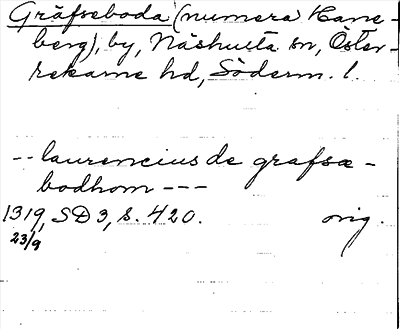 Gräfseboda (numera Hane-
berg), by, Näshulta sn, Öster-
rekarne hd, Söderm. l.
-- laurencius de grafsæ-
bodhom ---
1319, SD 3, s. 420. orig.
23/9